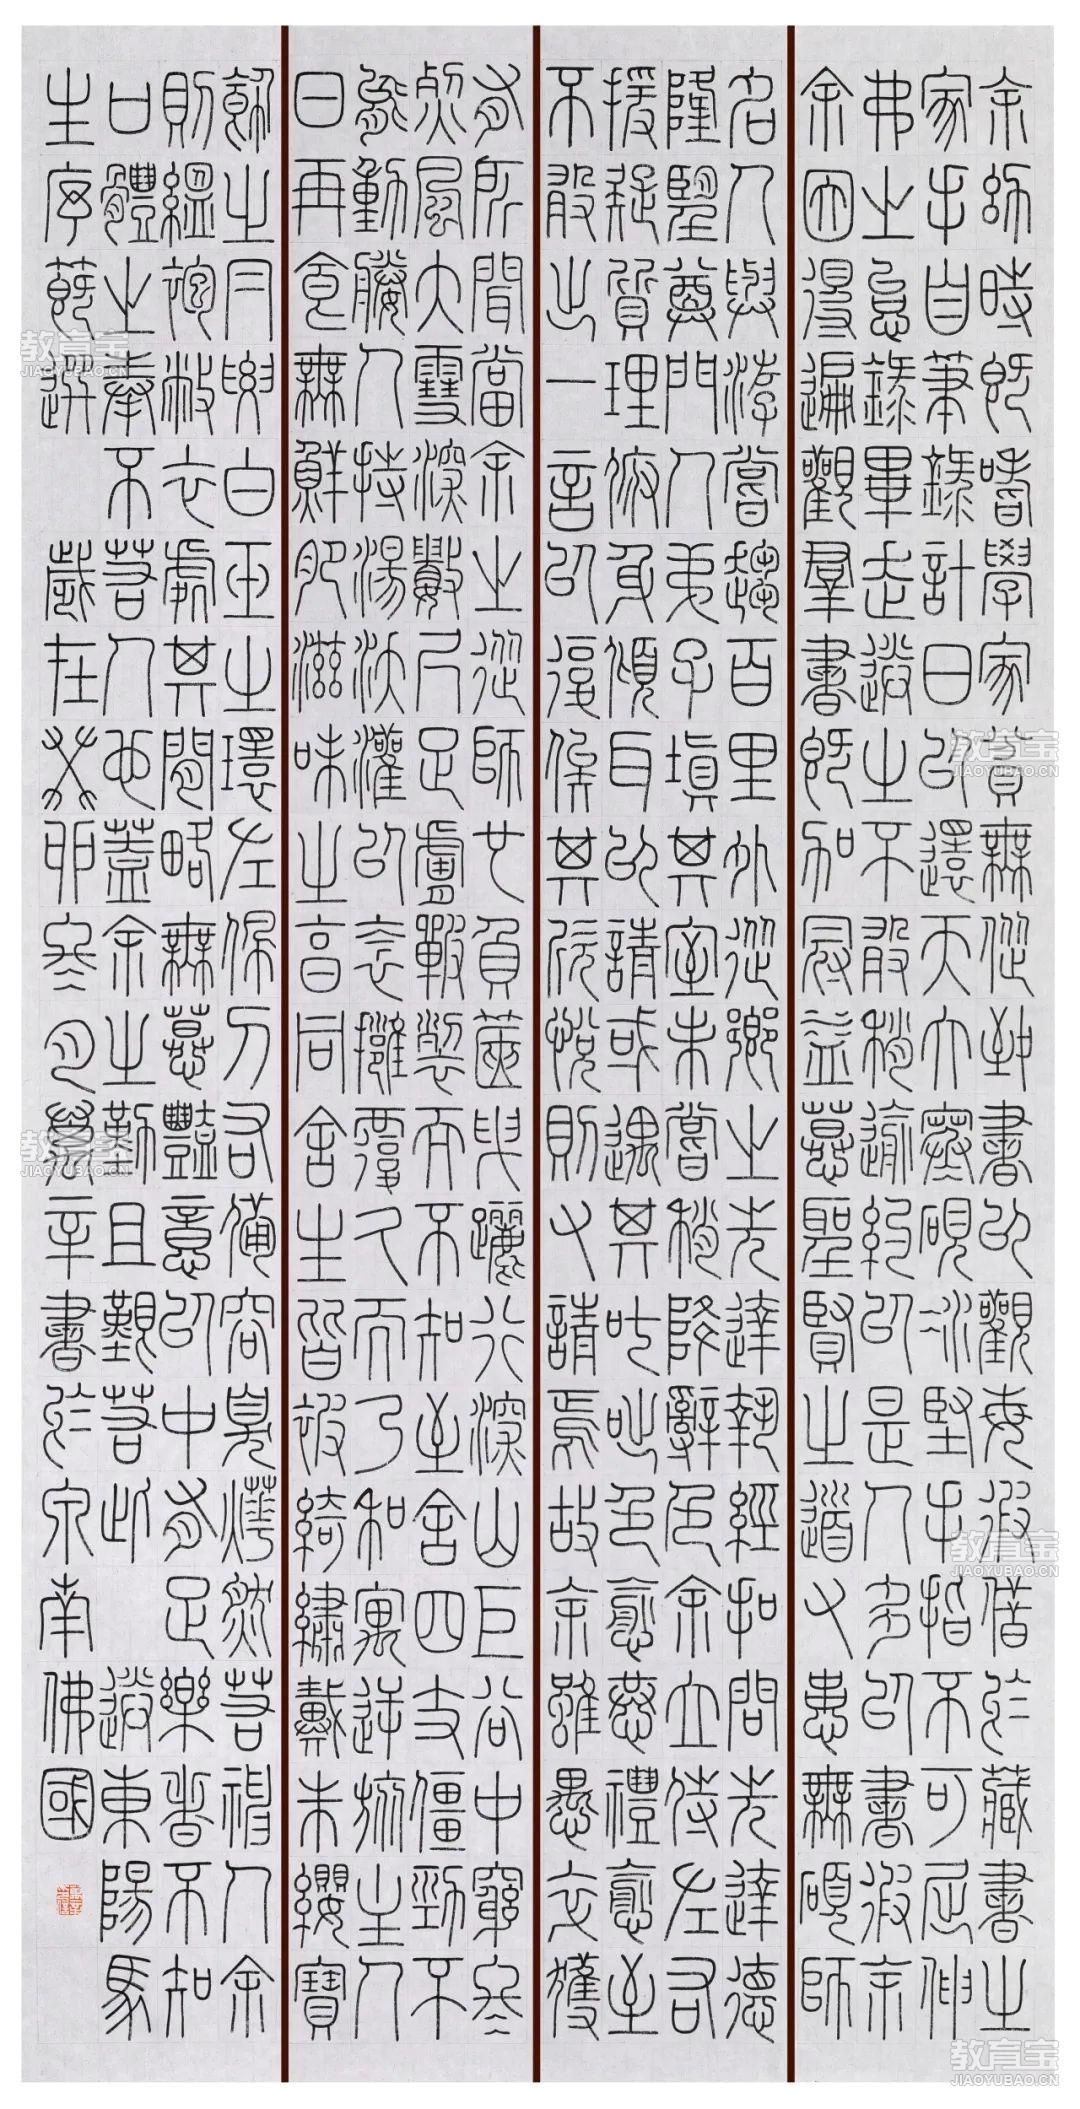 余幼時即嗜學家貧無從致書以觀每假借於藏書之
家手自筆錄計日以還天大寒硯冰堅手指不可屈伸
弗之怠錄畢走送之不敢稍逾約以是人多以書假余
余因得遍觀羣書既加冠益慕聖賢之道又患無碩師
名人與游嘗趨百里外從鄉之先達執經扣問先達德
隆望尊門人弟子填其室未嘗稍降辭色余立侍左右
援疑質理俯身傾耳以請或遇其叱咄色愈恭禮愈至
不敢出一言以復俟其欣悅則又請焉故余雖愚卒獲
有所聞當余之從師也負篋曳屣行深山巨谷中窮冬
烈風大雪深數尺足膚皸裂而不知至舍四支僵勁不
能動媵人持湯沃灌以衾擁覆久而乃和寓逆旅主人
日再食無鮮肥滋味之享同舍生皆被綺繡戴朱纓寶
飾之冃腰白玉之環左佩刀右備容臭燁然若神人余
則縕袍敝衣處其間略無慕豔意以中有足樂者不知
口體之奉不若人也蓋余之勤且艱若此 送東陽馬
生序節選 歲在癸卯冬月萬辛書於泉南佛國
教育宝
JIAOYUBAO.CN
教育宝
JIAOYUBAO.CN
教育宝
JIAOYUBAO.CN
教育宝
JIAOYUBAO.CN
教育宝
JIAOYUBAO.CN